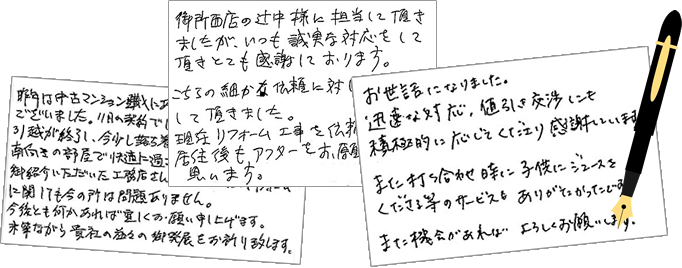 昨年は中古マンション購入に
ございました。11月の契約で
引越が終了し、今少し
南向きの部屋で快適に過
御紹介いただいた工務店さん
に関しても今の所は問題ありません。
今後とも何かあれば宜しくお願い申し上げます。
末筆ながら貴社の益々の御発展をお祈り致します。
御所西店の辻中様に担当して頂き
ましたが、いつも誠実な対応をして
頂きとても感謝しております。
こちらの細かな依頼に対し
して頂きました。
現在リフォーム工事を依頼
居住後も、アフターをお願
思います。
お世話になりました。
迅速な対応、値引き交渉にも
積極的に応じてくださり感謝しています
また打ち合わせ時に子供にジュースを
くださる等のサービスも ありがたかったです
また機会があれば よろしくお願いします。